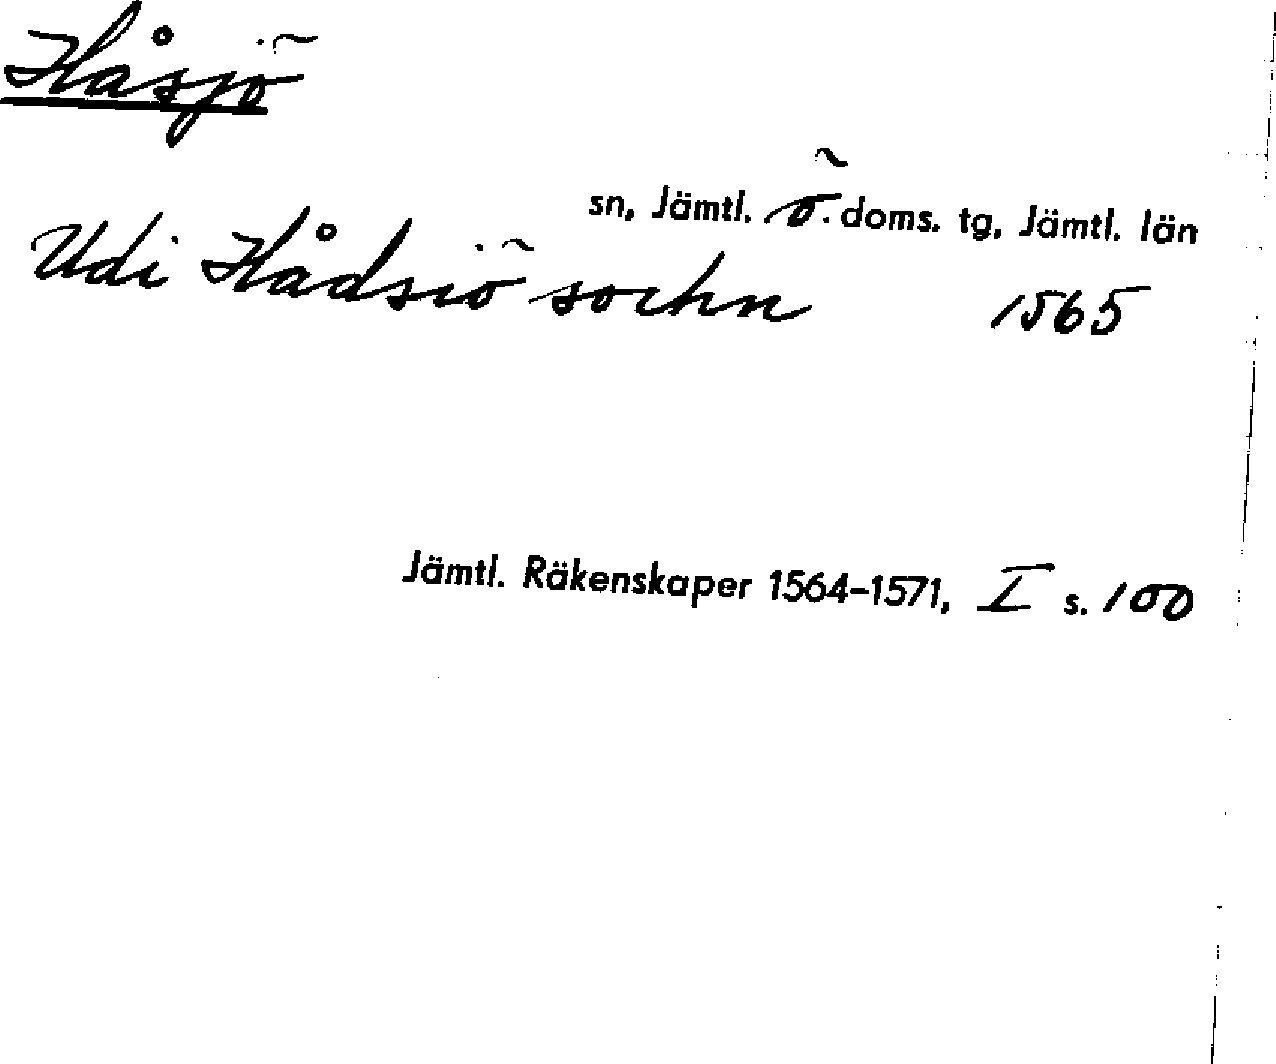 Håsjö
sn, Jämtl. ö. doms. tg, Jämtl. län
Udi Hådsiö sochn 1565
Jämtl. Räkenskaper 1564-1571, I s. 100